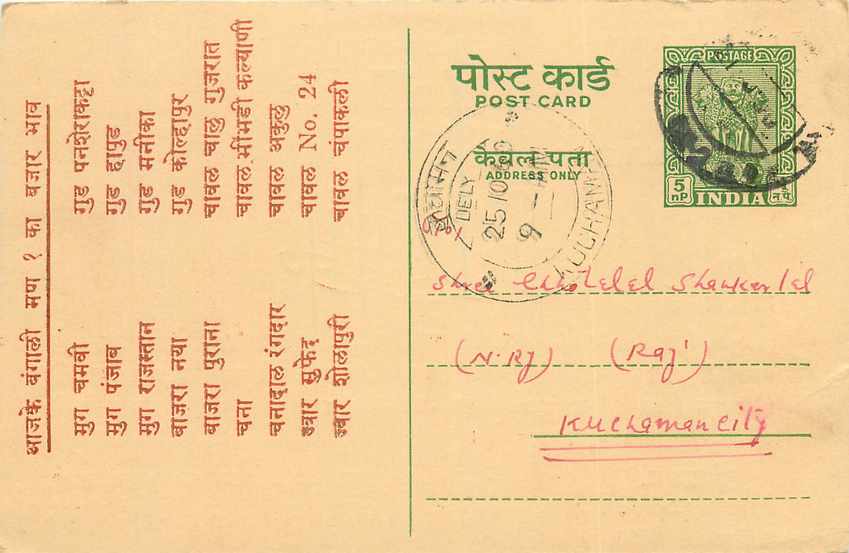 आजके बंगाली मण १ का बजार भाव
मुग चमकी
मुग पंजाब
मुग राजस्तान
बाजरा नया
बाजरा पुराना
चना
चनादाल रंगदार
ज्वार सुफेद
ज्वार शोलापुरी
गुड हापुड
गुड कोल्हापुर
चावल चालु गुजरात
चावल भीमडी कल्याणी
चावल No. 24
चावल चंपाकली
पोस्ट कार्ड
POST CARD
केवल पता
ADDRESS ONLY
POSTAGE
5
nP
INDIA
न.पै.
DELY
25 10 60
9
Shree Chhotelal Shankerlal
(N.Rj) (Raj')
Kuchaman city